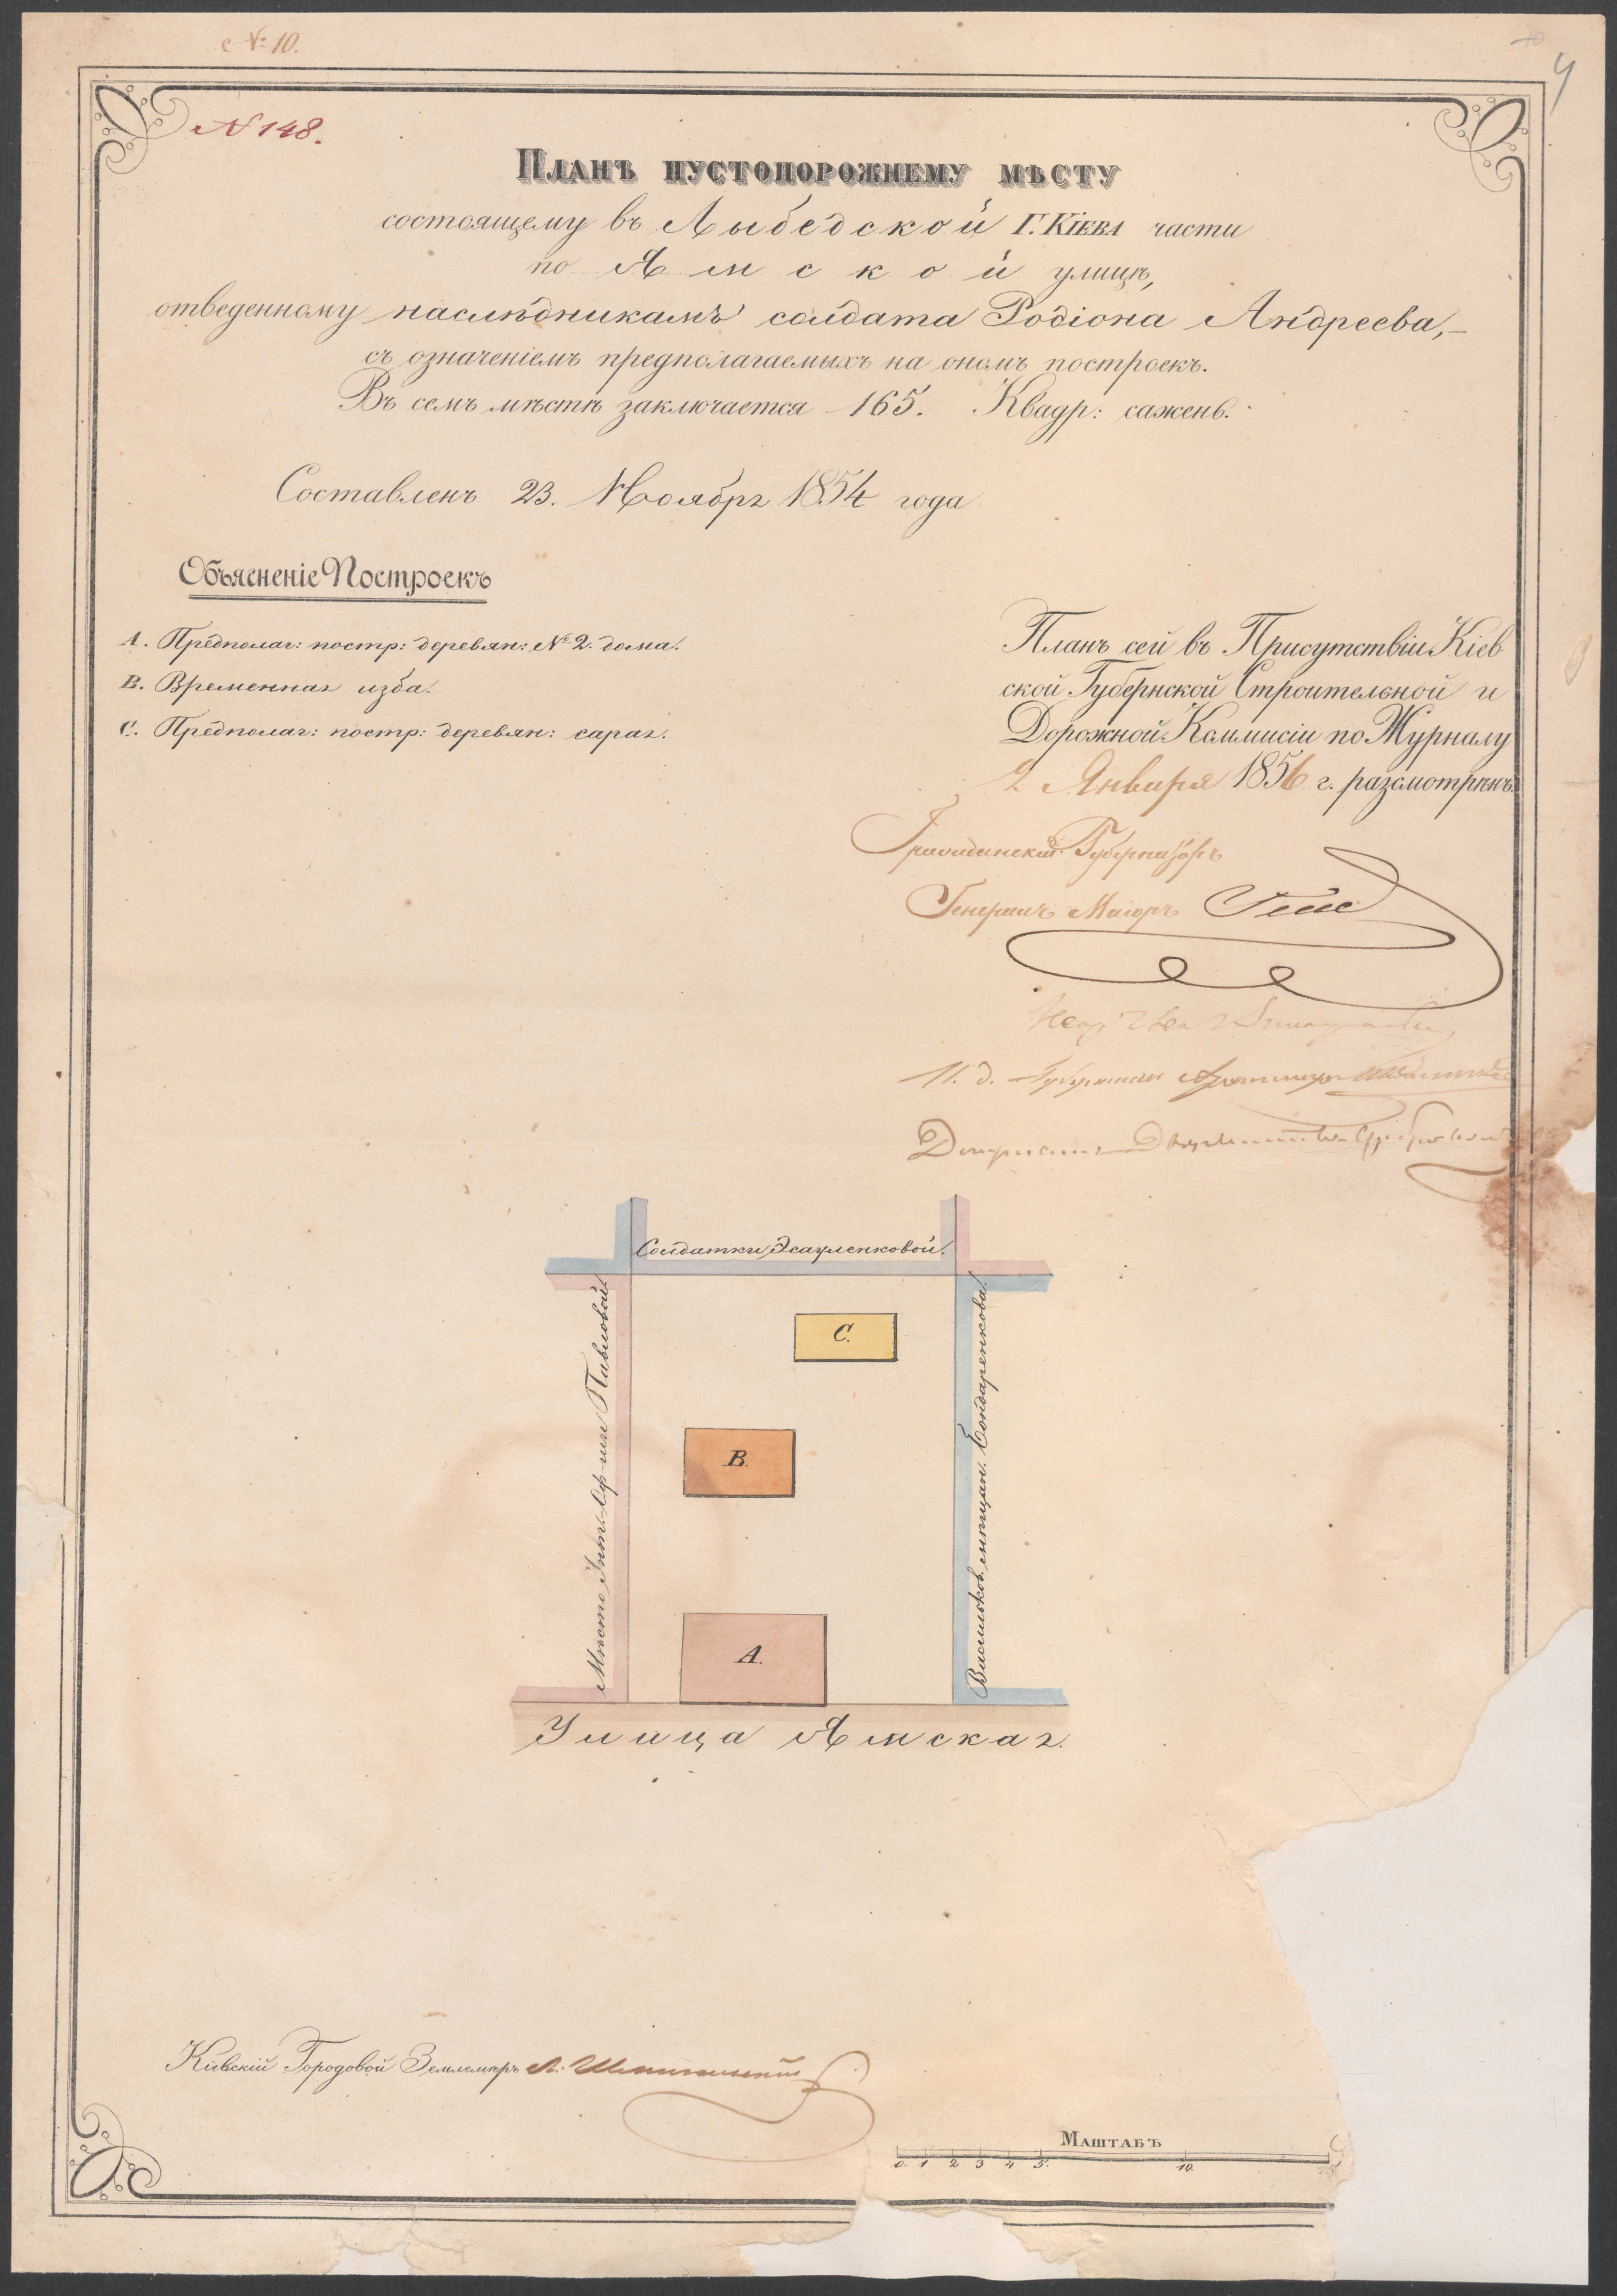 № 10.
4
N 148.
Планъ пустопорожнему мѣсту
состоящему въ Лыбедской Г. Кіева части
по Ямской улицѣ,
отведенному наслѣдникамъ солдата Родіона Андреева,–
съ означеніемъ предполагаемыхъ на ономъ построекъ.
Въ семъ мѣстѣ заключается 165. Квадр: сажень.
Составленъ 23. Ноября 1854 года
Объясненіе Построекъ
А. Предполаг: постр: деревян: № 2. дома.
В. Временная изба.
С. Предполаг: постр: деревян: сарая.
Планъ сей въ Присутствіи Кіев
ской Губернской Строительной и
Дорожной Коммисіи по Журналу
2 Января 1856 г. разсмотрѣнъ.
Гражданскій Губернаторъ
Генералъ Маіоръ Гессе
И. д. Губернскаго
Солдатки Эсауленковой.
Мѣсто Павловой.
Васильков. мѣщан. Бондаренкова.
С.
В.
А.
Улица Ямская.
Кіевскій Городовой Землемѣръ
Маштабъ
0. 1 2 3 4 5. 10.